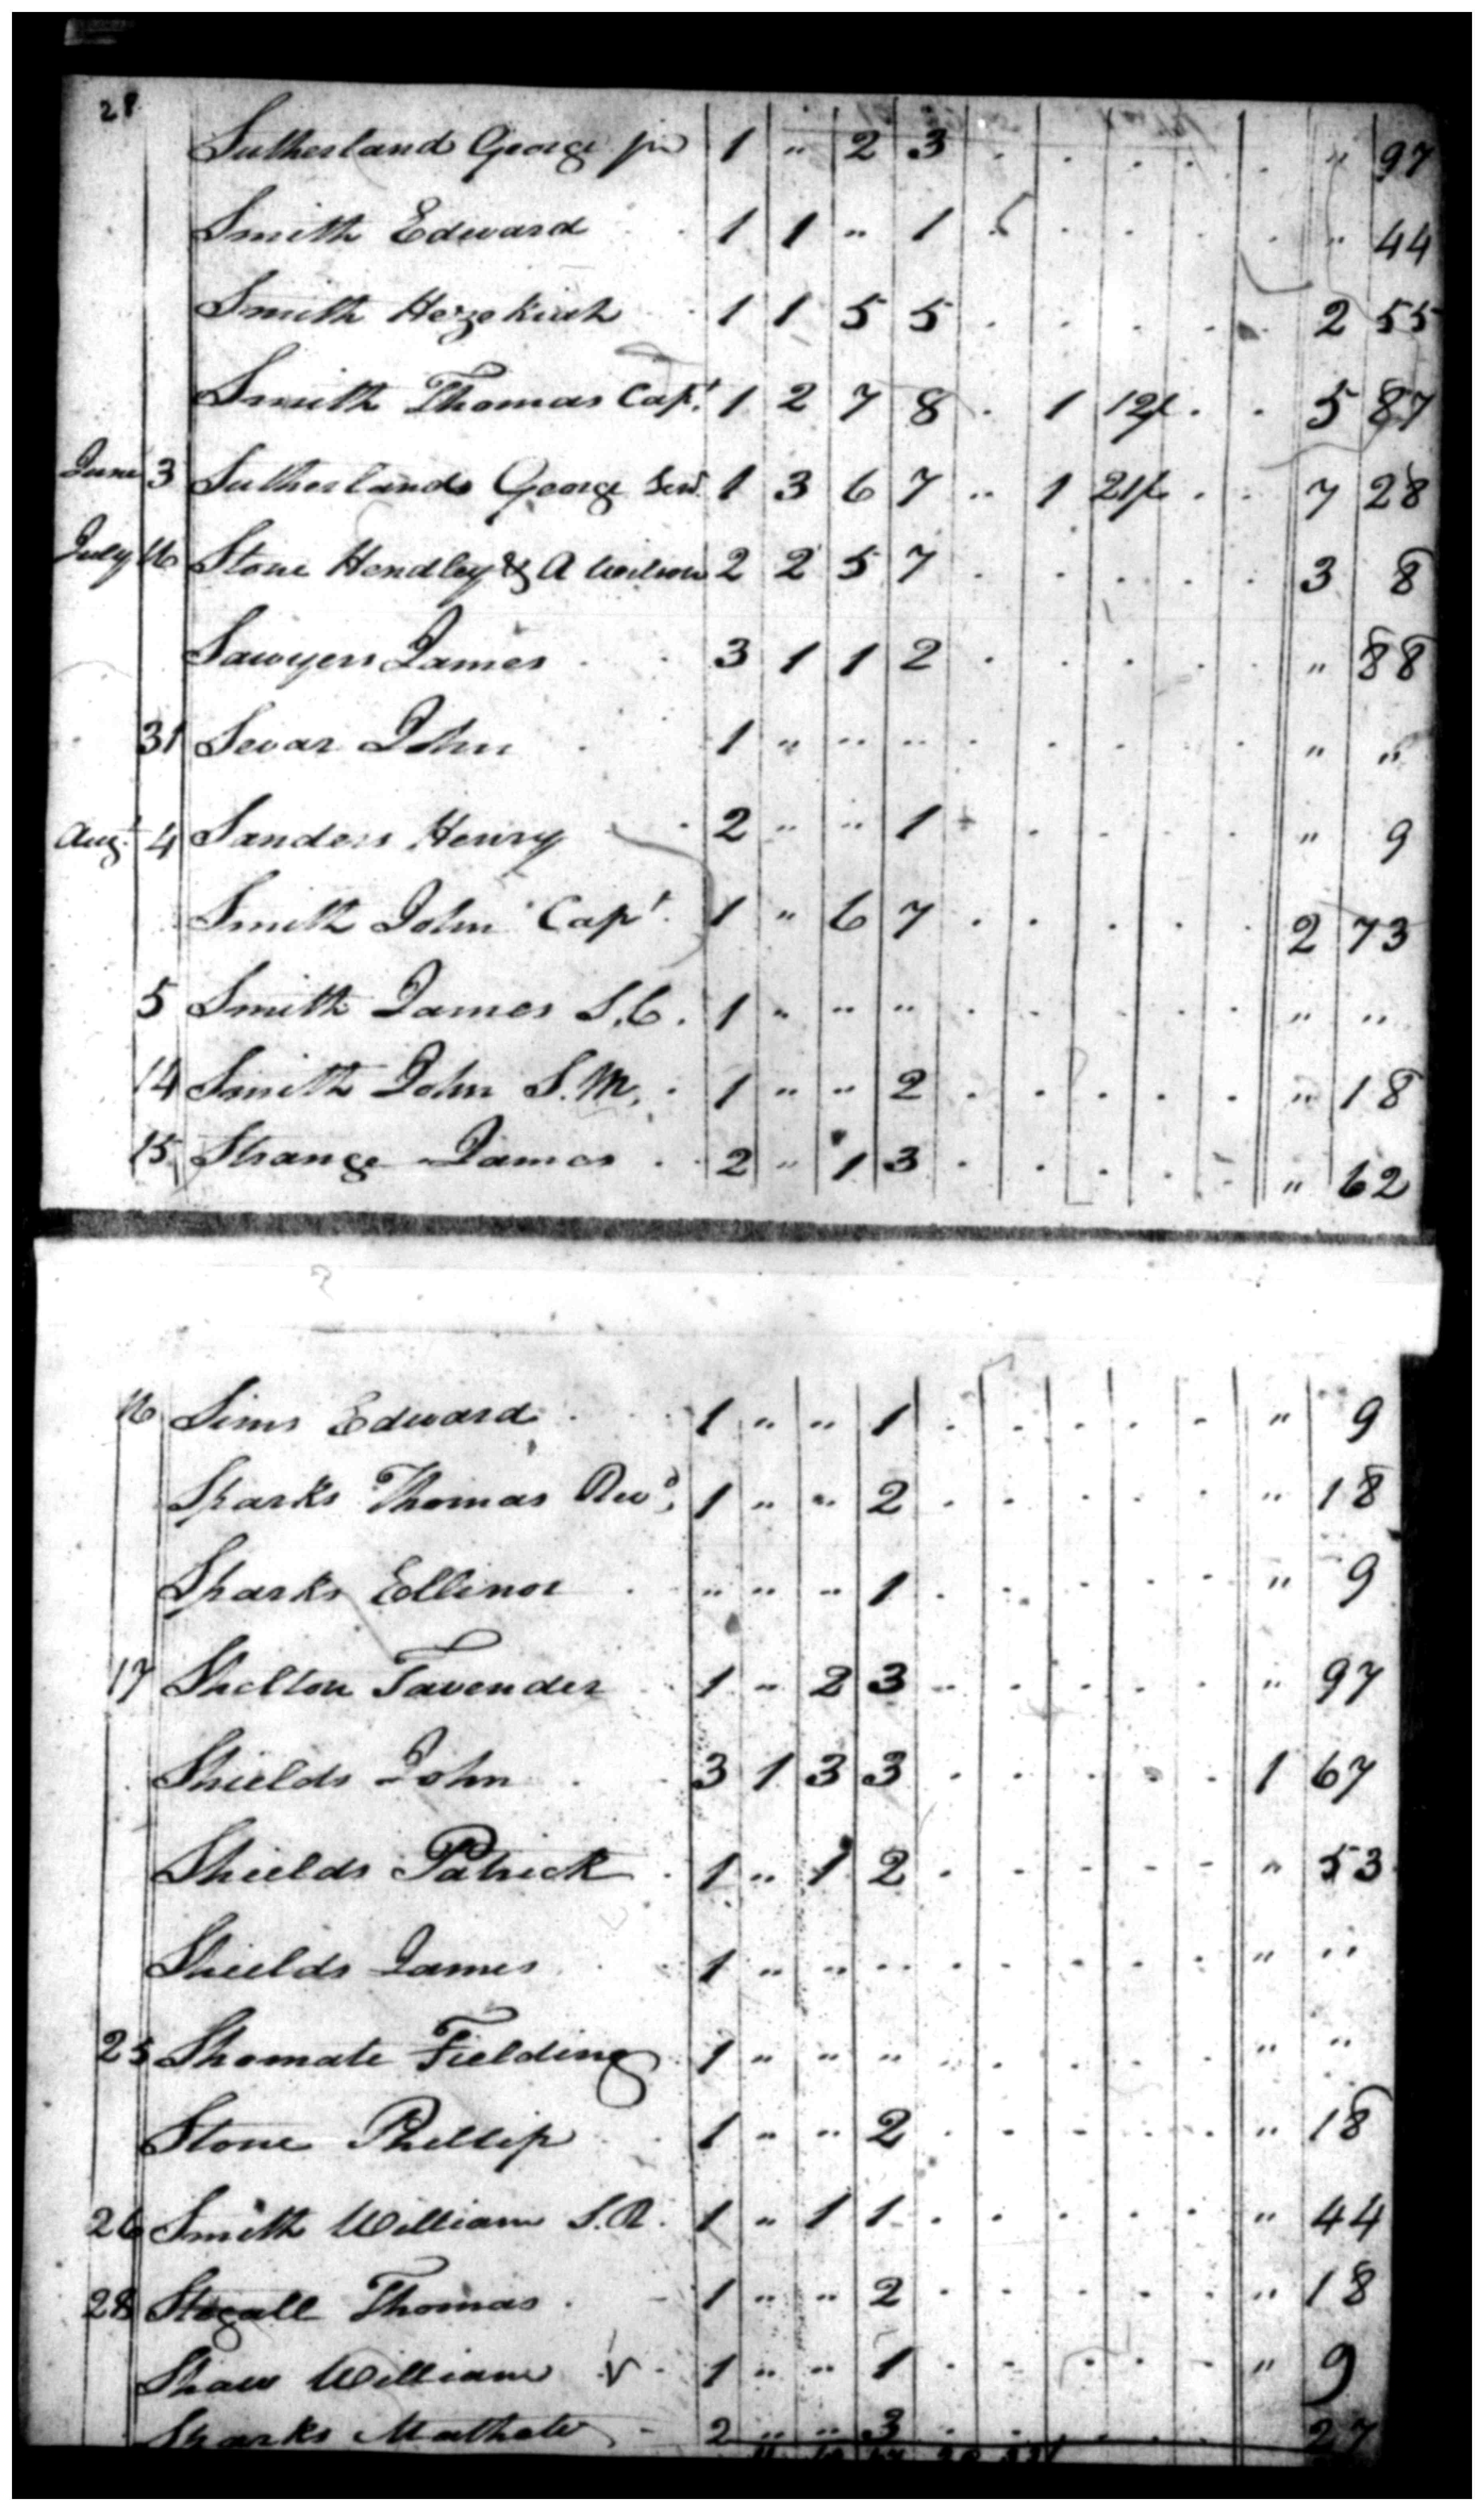 28
Sutherland George jr 1 " 2 3 . . . . . " 97
Smith Edward 1 1 " 1 . . . . . " 44
Smith Hezekiah 1 1 5 5 . . . . . 2 55
Smith Thomas Capt. 1 2 7 8 . 1 12/ . . 5 87
June 3 Sutherlands George Senr. 1 3 6 7 .. 1 21/ . . 7 28
July 16 Stone Hendley & A Wilson 2 2 5 7 . . . . . 3 8
Sawyers James 3 1 1 2 . . . . . " 88
31 Sevar John 1 " " " . . . . . " "
Augt. 4 Sanders Henry 2 " " 1 . . . . . " 9
Smith John Capt. 1 " 6 7 . . . . . 2 73
5 Smith James S.C. 1 " " " . . . . . " "
14 Smith John S.M. 1 " " 2 . . . . . " 18
15 Strange James 2 " 1 3 . . . . . " 62
16 Sims Edward 1 " " 1 . . . . . " 9
Sparks Thomas 1 " " 2 . . . . . " 18
Sparks Ellinor " " " 1 . . . . . " 9
17 Shelton Tavender 1 " 2 3 . . . . . " 97
Shields John 3 1 3 3 . . . . . 1 67
Shields Patrick 1 " 1 2 . . . . . " 53
Shields James 1 " " " . . . . . " "
25 Shomate Fielding 1 " " " . . . . . " "
Stone Phillip 1 " " 2 . . . . . " 18
26 Smith William S.R. 1 " 1 1 . . . . . " 44
28 Stegall Thomas 1 " " 2 . . . . . " 18
Shaw William 1 " " 1 . . . . . " 9
Sparks Mathew 2 " " 3 . . . . . 27